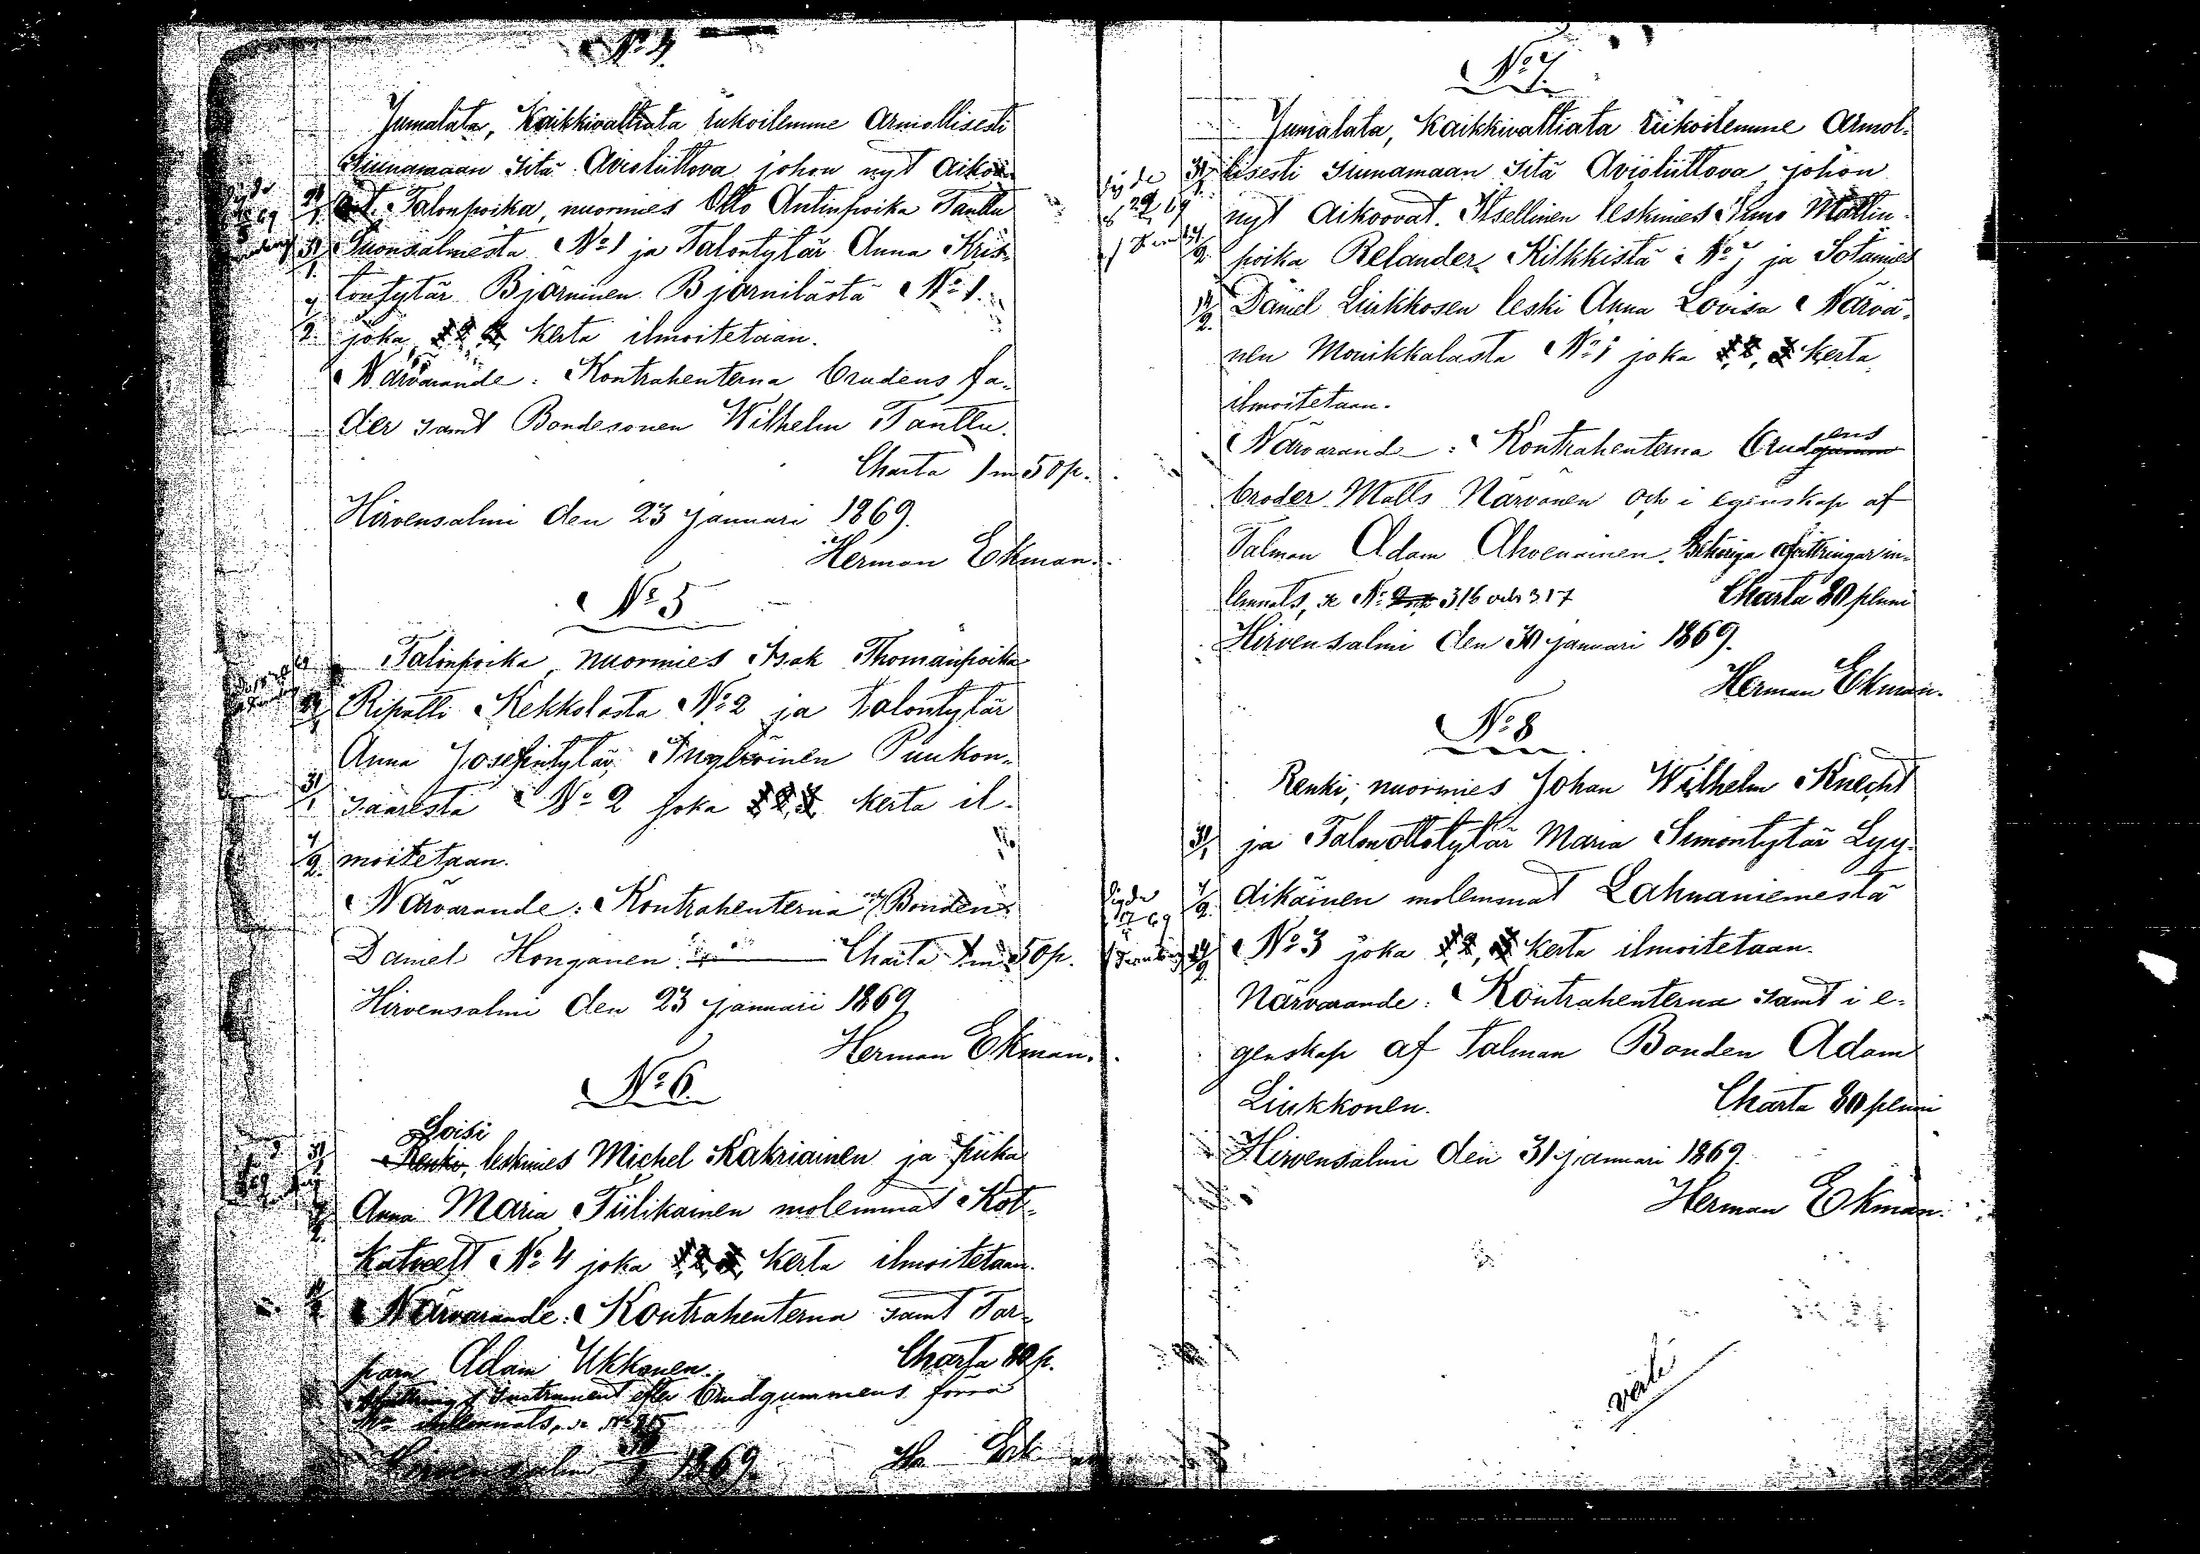 No 4.
Jumalata, Kaikkivaltiata rukoilemme Armollisesti
Siunamaan Sitä Avioliittova johon nyt aikoo-
vat. Talonpoika, nuormies Otto Antinpoika Tanttu
Suonsalmesta No 1 ja Talontytär Anna Kris-
tontytär Björninen Björnilästä No 1.
joka 1, 2, 3, kerta ilmoitetaan.
Närvarande: Kontrahenterna brudens fa-
der samt Bondesonen Wilhelm Tanttu.
Charta 1 m 50 p.
Hirvensalmi den 23 Januari 1869.
Herman Ekman.
No 5
Talonpoika, nuormies Isak Thomanpoika
Ripatti Kekkolasta No 2 ja Talontytär
Anna Josefintytär Puukon-
saaresta No 2 joka 1, 2, 3, kerta il-
moitetaan.
Närvarande: Kontrahenterna och Bonden
Daniel Honganen. Charta 1 m 50 p.
Hirvensalmi den 23 Januari 1869
Herman Ekman.
No 6.
Loisi
Renki, leskmies Michel Kakriainen ja piika
Anna Maria Tiilikainen molemmat Kot-
No 4 joka 1, 2, 3, kerta ilmoitetaan.
Närvarande: Kontrahenterna samt Tor-
parn Adam Ukkonen. Charta 80 p.
instrument efter brudgummens förra
Hirvensalmi 1869.
No 7.
Jumalata, Kaikkivaltiata rukoilemme Armol-
lisesti Siunamaan Sitä Avioliittova johon
nyt Aikoovat. Itsellinen leskmies Simo Mattin-
poika Relander, Kilkkistä No 7 ja Sotamies
Daniel Liukkosen leski Anna Lovisa Närvä-
nen Monikkalasta No 1 joka 1, 2, 3 kerta
ilmoitetaan.
Närvarande: Kontrahenterna brudens
broder Matts Närvänen och i egenskap af
Talman Adam Ahvenainen. Behöriga afvittringar in-
lemnats, se No 316 och 317 Charta 80 penni
Hirvensalmi den 30 januari 1869.
Herman Ekman.
No 8
Renki, nuormies Johan Wilhelm Knecht
ja Talonottotytär Maria Simontytär Lyy-
dikäinen molemmat Lahnaniemestä
No 3 joka 1, 2, 3 kerta ilmoitetaan.
Närvarande: Kontrahenterna samt i e-
genskap af Talman Bonden Adam
Liukkonen. Charta 80 penni
Hirvensalmi den 31 januari 1869.
Herman Ekman.